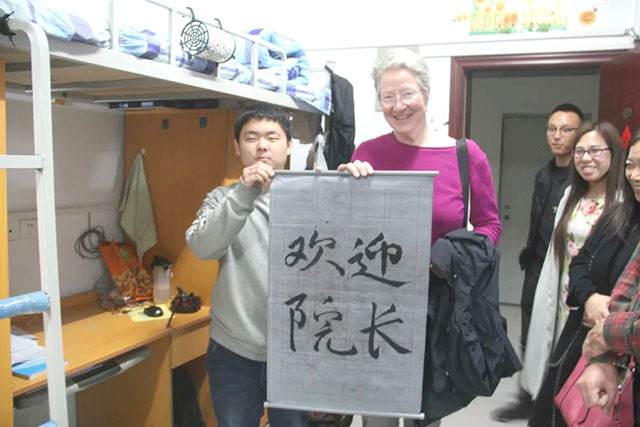 欢迎
院长